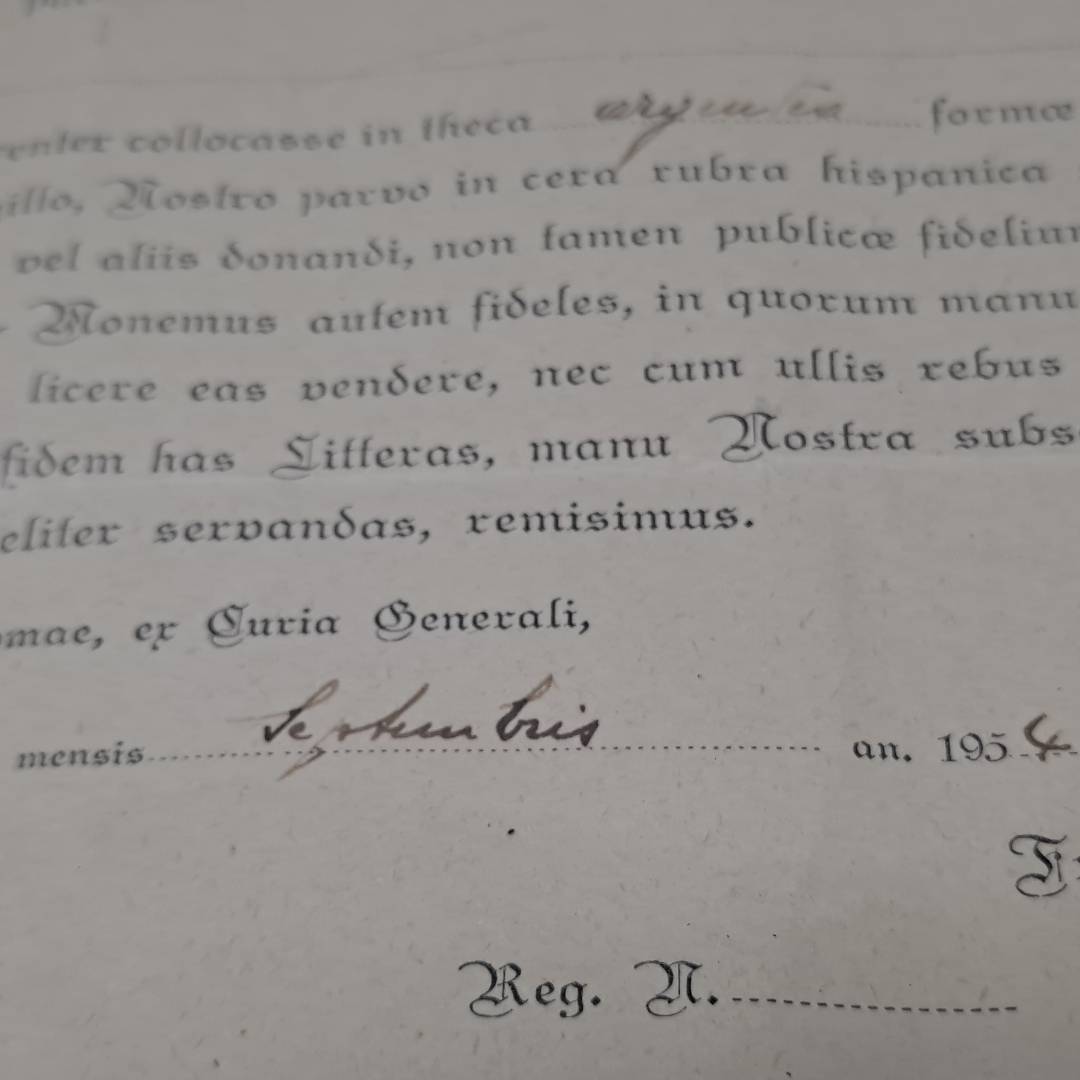 enter collocasse in theca argentea formæ
illo, Nostro parvo in cera rubra hispanica
vel aliis donandi, non tamen publicæ fidelium
Monemus autem fideles, in quorum manu
licere eas vendere, nec cum ullis rebus
fidem has Litteras, manu Nostra subs
eliter servandas, remisimus.
omae, ex Curia Generali,
mensis Septembris an. 1954
Reg. N.